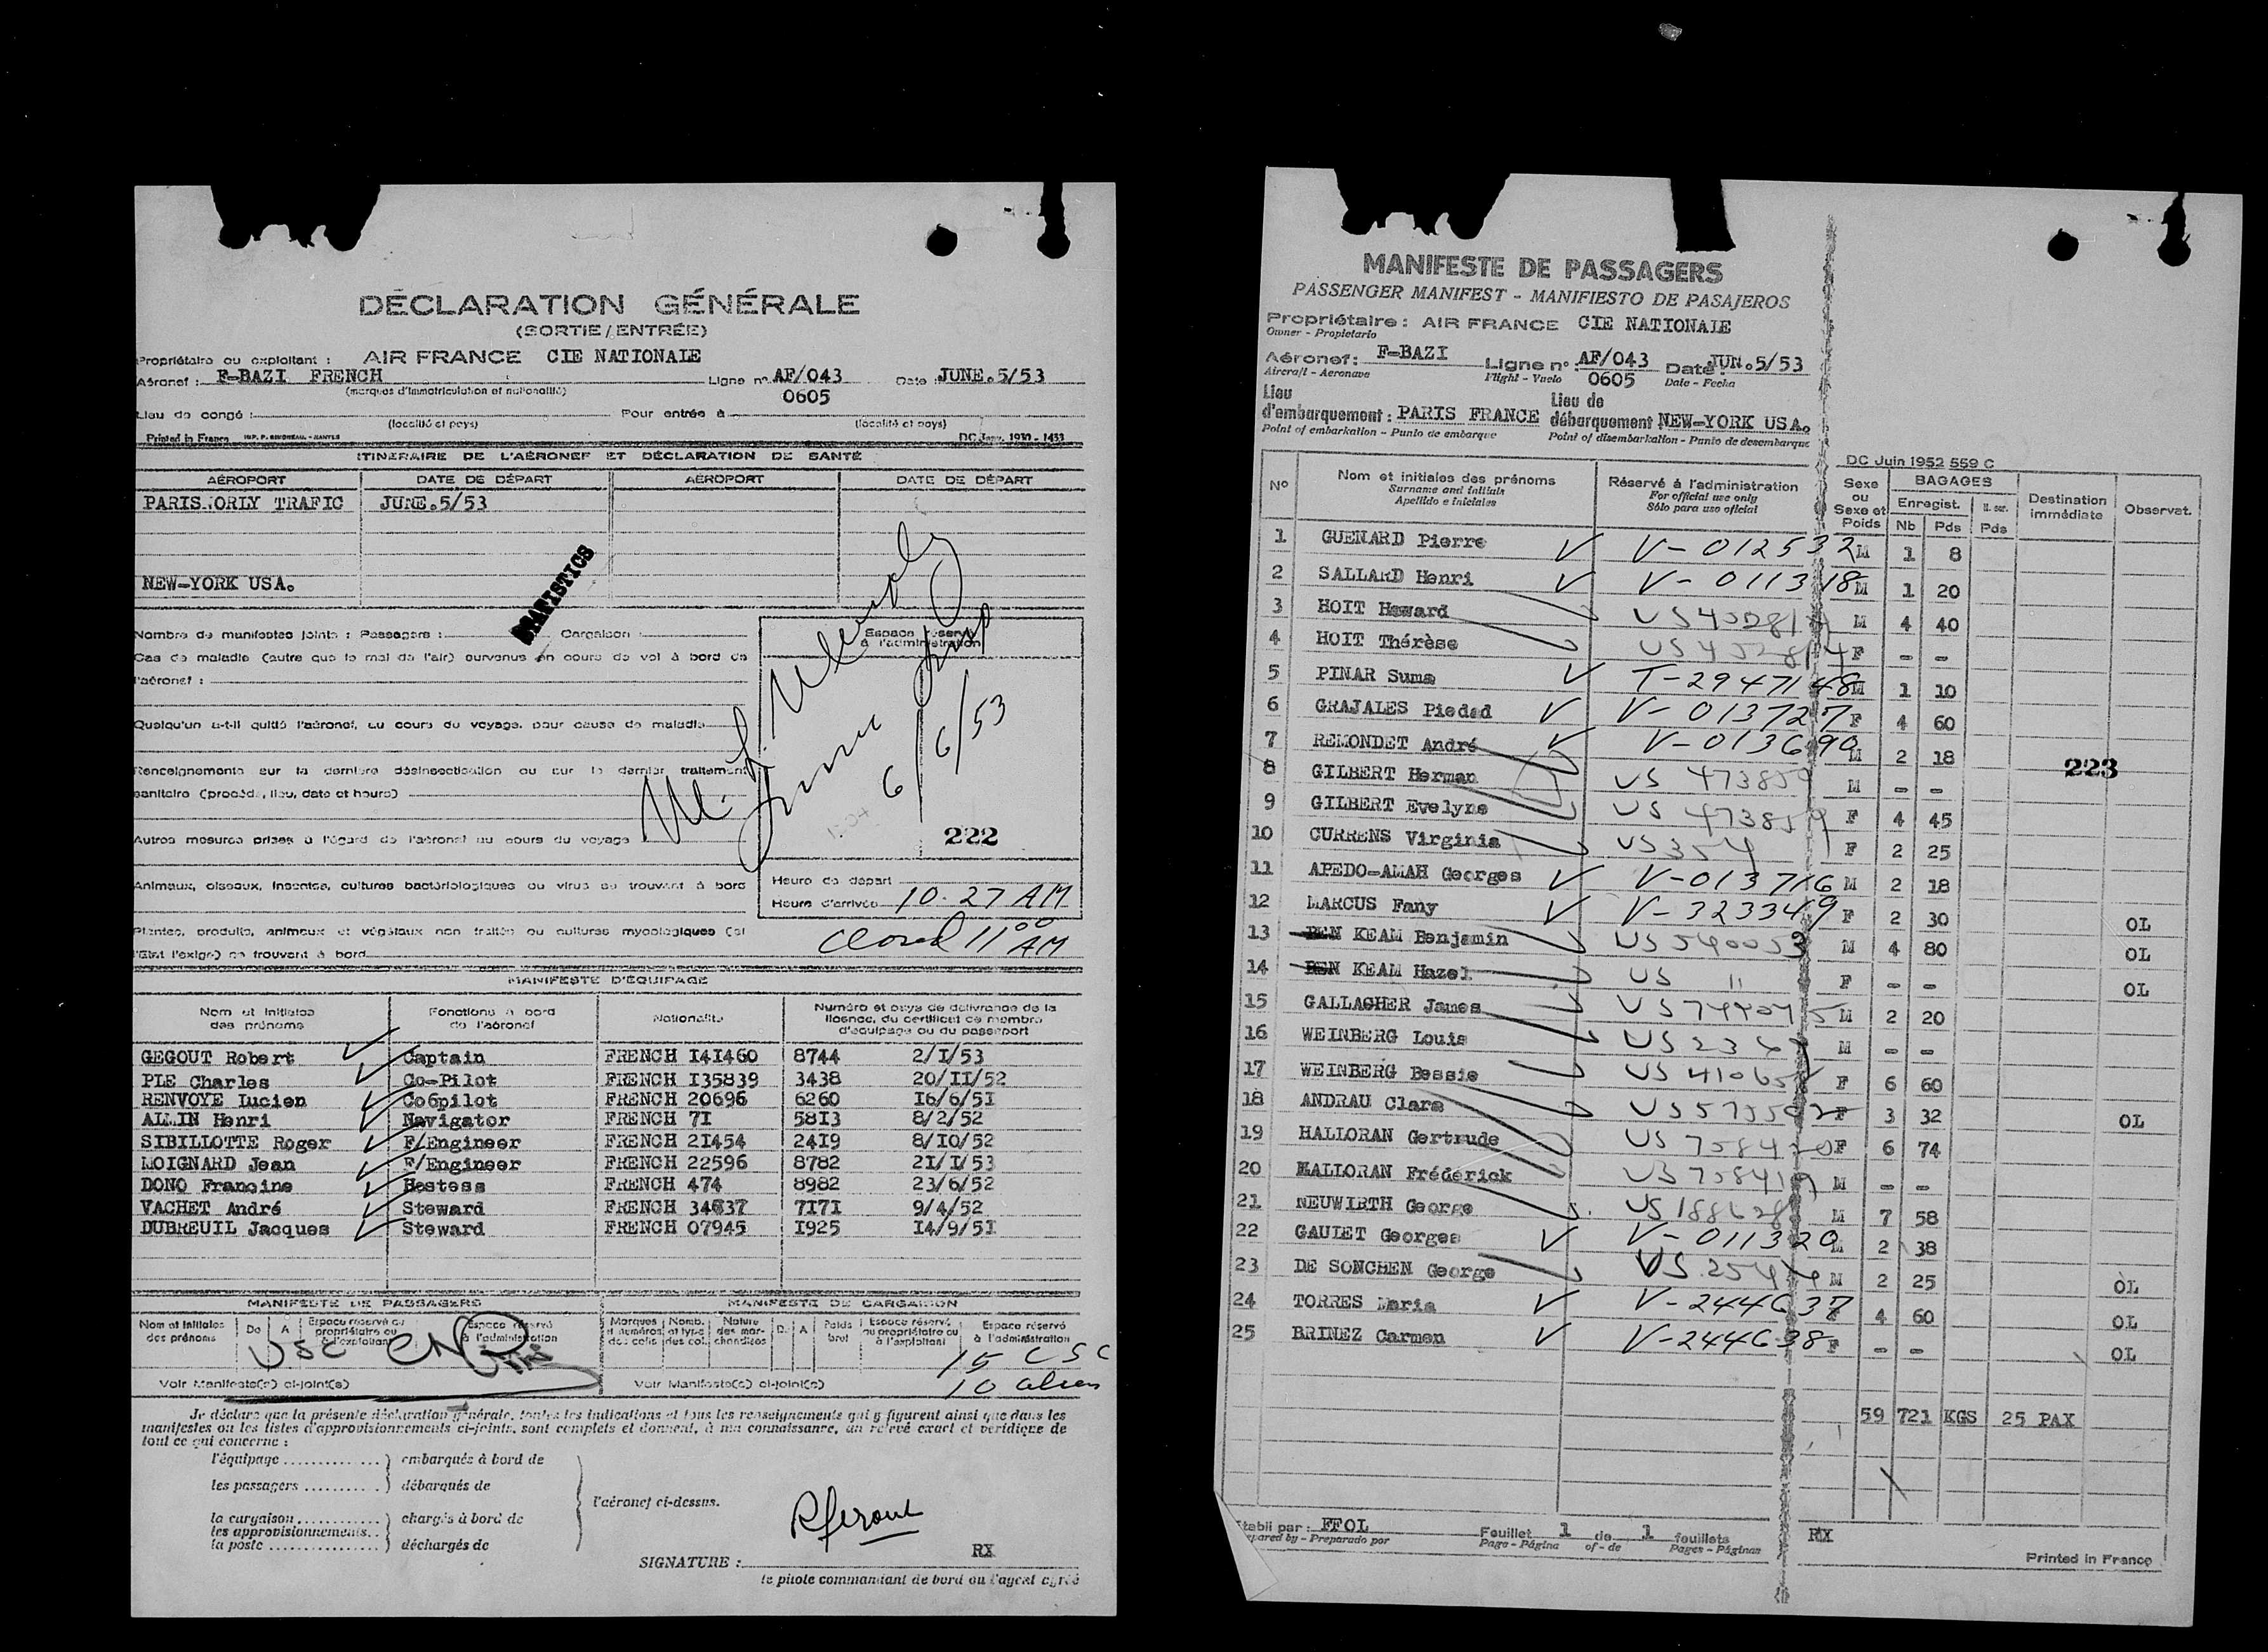 DÉCLARATION GÉNÉRALE
(SORTIE / ENTRÉE)
Propriétaire ou exploitant : AIR FRANCE CIE NATIONALE
Aéronef : F-BAZI FRENCH Ligne n° AF/043 Date JUNE.5/53
(marques d'immatriculation et nationalité) 0605
Lieu de congé : Pour entrée à
(localité et pays) (localité et pays)
Printed in France
ITINÉRAIRE DE L'AÉRONEF ET DÉCLARATION DE SANTÉ
AÉROPORT DATE DE DÉPART AÉROPORT DATE DE DÉPART
PARIS.ORLY TRAFIC JUNE.5/53
NEW-YORK USA.
Nombre de manifestes joints : Passagers : Cargaison :
Espace réservé à l'administration
Cas de maladie (autre que le mal de l'air) survenus en cours de vol à bord de
l'aéronef :
Quelqu'un a-t-il quitté l'aéronef, au cours du voyage, pour cause de maladie
6/6/53
Renseignements sur la dernière désinsectisation ou sur le dernier traitement
sanitaire (procédé, lieu, date et heure)
Autres mesures prises à l'égard de l'aéronef au cours du voyage
222
Animaux, oiseaux, insectes, cultures bactériologiques ou virus se trouvant à bord
Heure de départ
Heure d'arrivée 10.27 AM
Plantes, produits, animaux et végétaux non traités ou cultures mycologiques (si
l'Etat l'exige) se trouvant à bord
closed 11 00 AM
MANIFESTE D'ÉQUIPAGE
Nom et initiales des prénoms Fonctions à bord de l'aéronef Nationalité Numéro et pays de délivrance de la licence, du certificat de membre d'équipage ou du passeport
GEGOUT Robert Captain FRENCH I4I460 8744 2/I/53
PLE Charles Co-Pilot FRENCH I35839 3438 20/II/52
RENVOYE Lucien Co6pilot FRENCH 20696 6260 I6/6/5I
ALLIN Henri Navigator FRENCH 7I 58I3 8/2/52
SIBILLOTTE Roger F/Engineer FRENCH 2I454 24I9 8/IO/52
MOIGNARD Jean F/Engineer FRENCH 22596 8782 2I/I/53
DONO Francine Hestess FRENCH 474 8982 23/6/52
VACHET André Steward FRENCH 34637 7I7I 9/4/52
DUBREUIL Jacques Steward FRENCH 07945 I925 I4/9/5I
MANIFESTE DE PASSAGERS MANIFESTE DE CARGAISON
Nom et initiales des prénoms De A Espace réservé au propriétaire ou à l'exploitant Espace réservé à l'administration Marques et numéros des colis Nomb. et type des col. Nature des marchandises D. A Poids brut Espace réservé au propriétaire ou à l'exploitant Espace réservé à l'administration
USC 15 USC
Voir Manifeste(s) ci-joint(s) Voir Manifeste(s) ci-joint(s) 10 alien
Je déclare que la présente déclaration générale, toutes les indications et tous les renseignements qui y figurent ainsi que dans les
manifestes ou les listes d'approvisionnements ci-joints, sont complets et donnent, à ma connaissance, un relevé exact et véridique de
tout ce qui concerne :
l'équipage } embarqués à bord de
les passagers } débarqués de
l'aéronef ci-dessus.
la cargaison } chargés à bord de
les approvisionnements
la poste } déchargés de
RX
SIGNATURE :
le pilote commandant de bord ou l'agent agréé
MANIFESTE DE PASSAGERS
PASSENGER MANIFEST - MANIFIESTO DE PASAJEROS
Propriétaire : AIR FRANCE CIE NATIONALE
Owner - Propietario
Aéronef : F-BAZI Ligne n° : AF/043 Date : JUN.5/53
Aircraft - Aeronave Flight - Vuelo 0605 Date - Fecha
Lieu d'embarquement : PARIS FRANCE Lieu de débarquement NEW-YORK USA.
Point of embarkation - Punto de embarque Point of disembarkation - Punto de desembarque
DC Juin 1952 559 C
N° Nom et initiales des prénoms Réservé à l'administration Sexe ou Sexe et Poids BAGAGES Destination immédiate Observat.
Surname and initials For official use only Enregist.
Apellido e iniciales Sólo para uso oficial Nb Pds Pds
1 GUENARD Pierre V V-012532 M 1 8
2 SALLARD Henri V V-011318 M 1 20
3 HOIT Howard M 4 40
4 HOIT Thérèse F - -
5 PINAR Suma V T-2947148 M 1 10
6 GRAJALES Piedad V V-013727 F 4 60
7 REMONDET André V V-013690 M 2 18
223
8 GILBERT Herman US 473859 M - -
9 GILBERT Evelyne US 473859 F 4 45
10 CURRENS Virginia F 2 25
11 APEDO-AMAH Georges V V-013716 M 2 18
12 MARCUS Fany V V-323349 F 2 30 OL
13 BEN KEAM Benjamin US 540053 M 4 80 OL
14 BEN KEAM Hazel US 11 F - - OL
15 GALLAGHER James M 2 20
16 WEINBERG Louis M - -
17 WEINBERG Bessie F 6 60
18 ANDRAU Clara F 3 32 OL
19 HALLORAN Gertrude F 6 74
20 HALLORAN Fréderick US 758419 M - -
21 NEUWIRTH George M 7 58
22 GAULET Georges V V-011320 M 2 38
23 DE SONCHEN George M 2 25 OL
24 TORRES Maria V V-244637 F 4 60 OL
25 BRINEZ Carmen V V-244638 F - - OL
59 721 KGS 25 PAX
Etabli par : FFOL Feuillet 1 de 1 feuillets RX
Prepared by - Preparado por Page - Página of - de Pages - Páginas
Printed in France